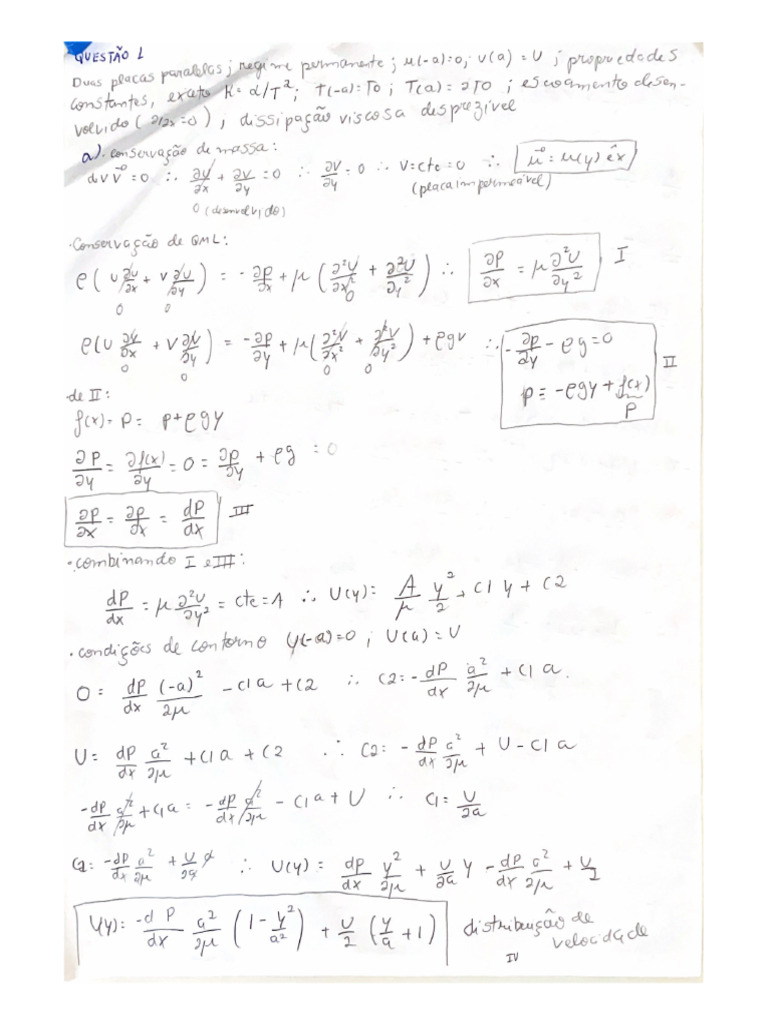 QUESTÃO 1
Duas placas paralelas; regime permanente; u(-a)=0; u(a)=U; propriedades
constantes, exceto K=α/T²; T(-a)=T0; T(a)=2T0; escoamento desen-
volvido (∂/∂x=0); dissipação viscosa desprezível
a). conservação de massa:
div V⃗=0 ∴ ∂u/∂x + ∂v/∂y = 0 ∴ ∂v/∂y = 0 ∴ V=cte=0 ∴ u⃗ = u(y) êx
0 (desenvolvido) (placa impermeável)
·Conservação de QML:
ρ(u ∂u/∂x + v ∂u/∂y) = -∂p/∂x + μ(∂²u/∂x² + ∂²u/∂y²) ∴ ∂p/∂x = μ ∂²u/∂y² I
0 0 0
ρ(u ∂v/∂x + v ∂v/∂y) = -∂p/∂y + μ(∂²v/∂x² + ∂²v/∂y²) + ρgy ∴ -∂p/∂y - ρg = 0
0 0 0 0
p = -ρgy + f(x) II
P
de II:
f(x) = P = p + ρgy
∂P/∂y = ∂f(x)/∂y = 0 = ∂p/∂y + ρg = 0
∂P/∂x = ∂p/∂x = dP/dx III
·combinando I e III:
dP/dx = μ ∂²u/∂y² = cte = A ∴ U(y) = A/μ y²/2 + C1 y + C2
·condições de contorno u(-a)=0; U(a)=U
0 = dP/dx (-a)²/2μ - C1 a + C2 ∴ C2 = -dP/dx a²/2μ + C1 a.
U = dP/dx a²/2μ + C1 a + C2 ∴ C2: -dP/dx a²/2μ + U - C1 a
-dP/dx a²/2μ + C1 a = -dP/dx a²/2μ - C1 a + U ∴ C1 = U/2a
C2: -dP/dx a²/2μ + U/2a a ∴ U(y) = dP/dx y²/2μ + U/2a y - dP/dx a²/2μ + U/2
U(y): -dP/dx a²/2μ (1 - y²/a²) + U/2 (y/a + 1) distribuição de
velocidade
IV